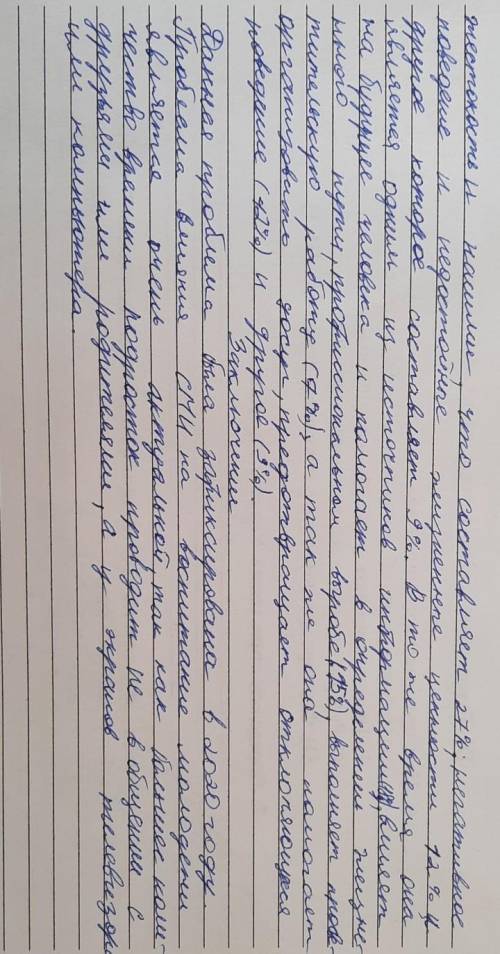 жестокость и насилие, что составляет 27%; негативное
поведение и недостойные жизненные ценности 12% и
другое которое составляет 9%. В то же время она
является одним из источников информации, влияет
на будущее человека и помогает в определении жизне-
нного пути, профессиональном выборе (15%), выполняет просве-
тительскую работу (7%), а так же она помогает
организовать досуг, предотвращает отклоняющееся
поведение (12%) и другое (3%).
Заключении
Данная проблема была зафиксирована в 2020 году.
Проблема влияния СМИ на воспитание молодежи
является очень актуальной так как большее коли-
чество времени подросток проводит не в общении с
друзьями или родителями, а у экранов телевизора
или компьютера.